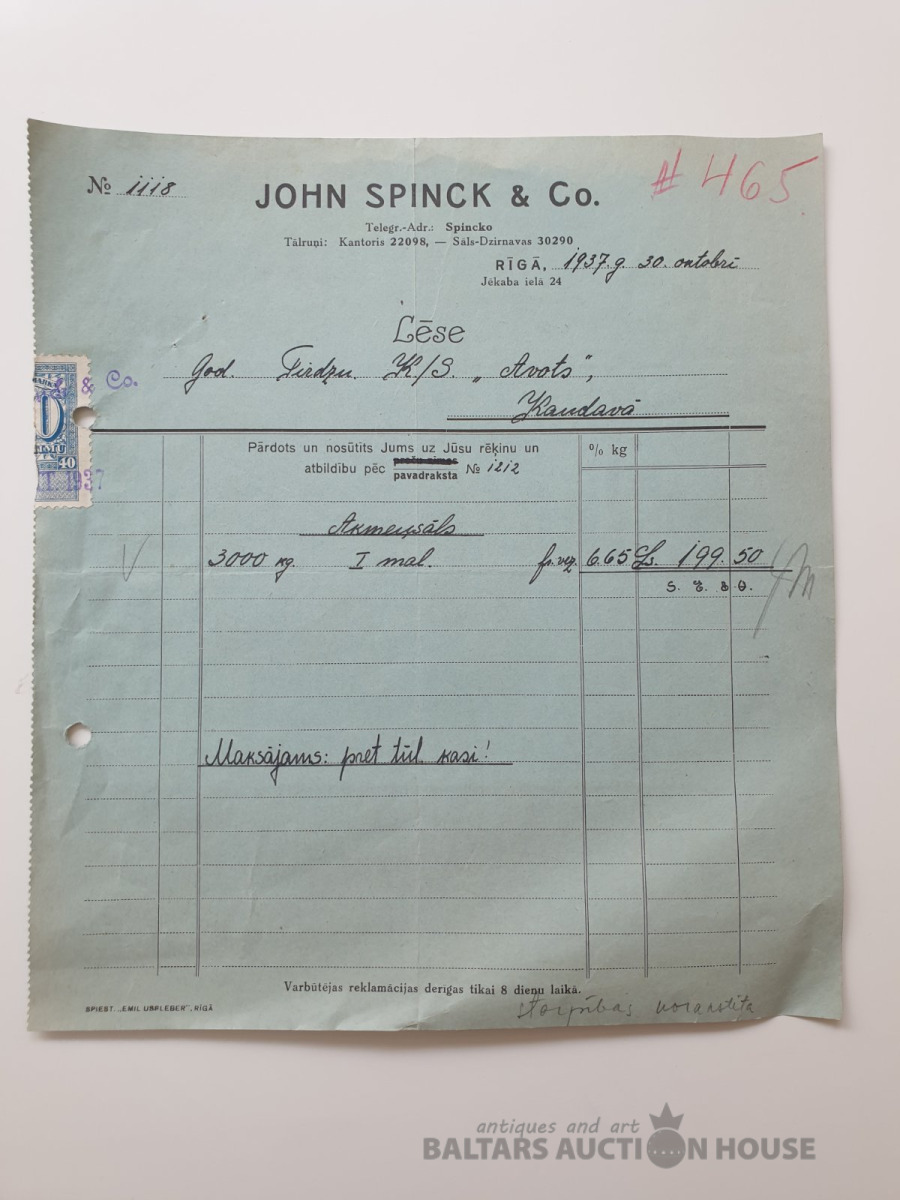 № 1118
# 465.
JOHN SPINCK & Co.
Telegr.-Adr.: Spincko
Tālruņi: Kantoris 22098, — Sāls-Dzirnavas 30290
RĪGĀ, 1937.g. 30. oktobrī
Jēkaba ielā 24
Lēse
God. Tirdzn. K/S. „Avots",
Kandavā
& Co.
40
1937
Pārdots un nosūtīts Jums uz Jūsu rēķinu un
atbildību pēc preču zīmes pavadraksta № 1212
% kg
Akmeņsāls
3000 kg. I mal. fr. vag. 6.65 Ls. 199.50
S. E. & O.
Maksājams: pret tūl. kasi!
Varbūtējas reklamācijas derīgas tikai 8 dienu laikā.
SPIEST. „EMIL USPLEBER", RĪGĀ
starpības norakstīta
antiques and art
BALTARS AUCTION HOUSE